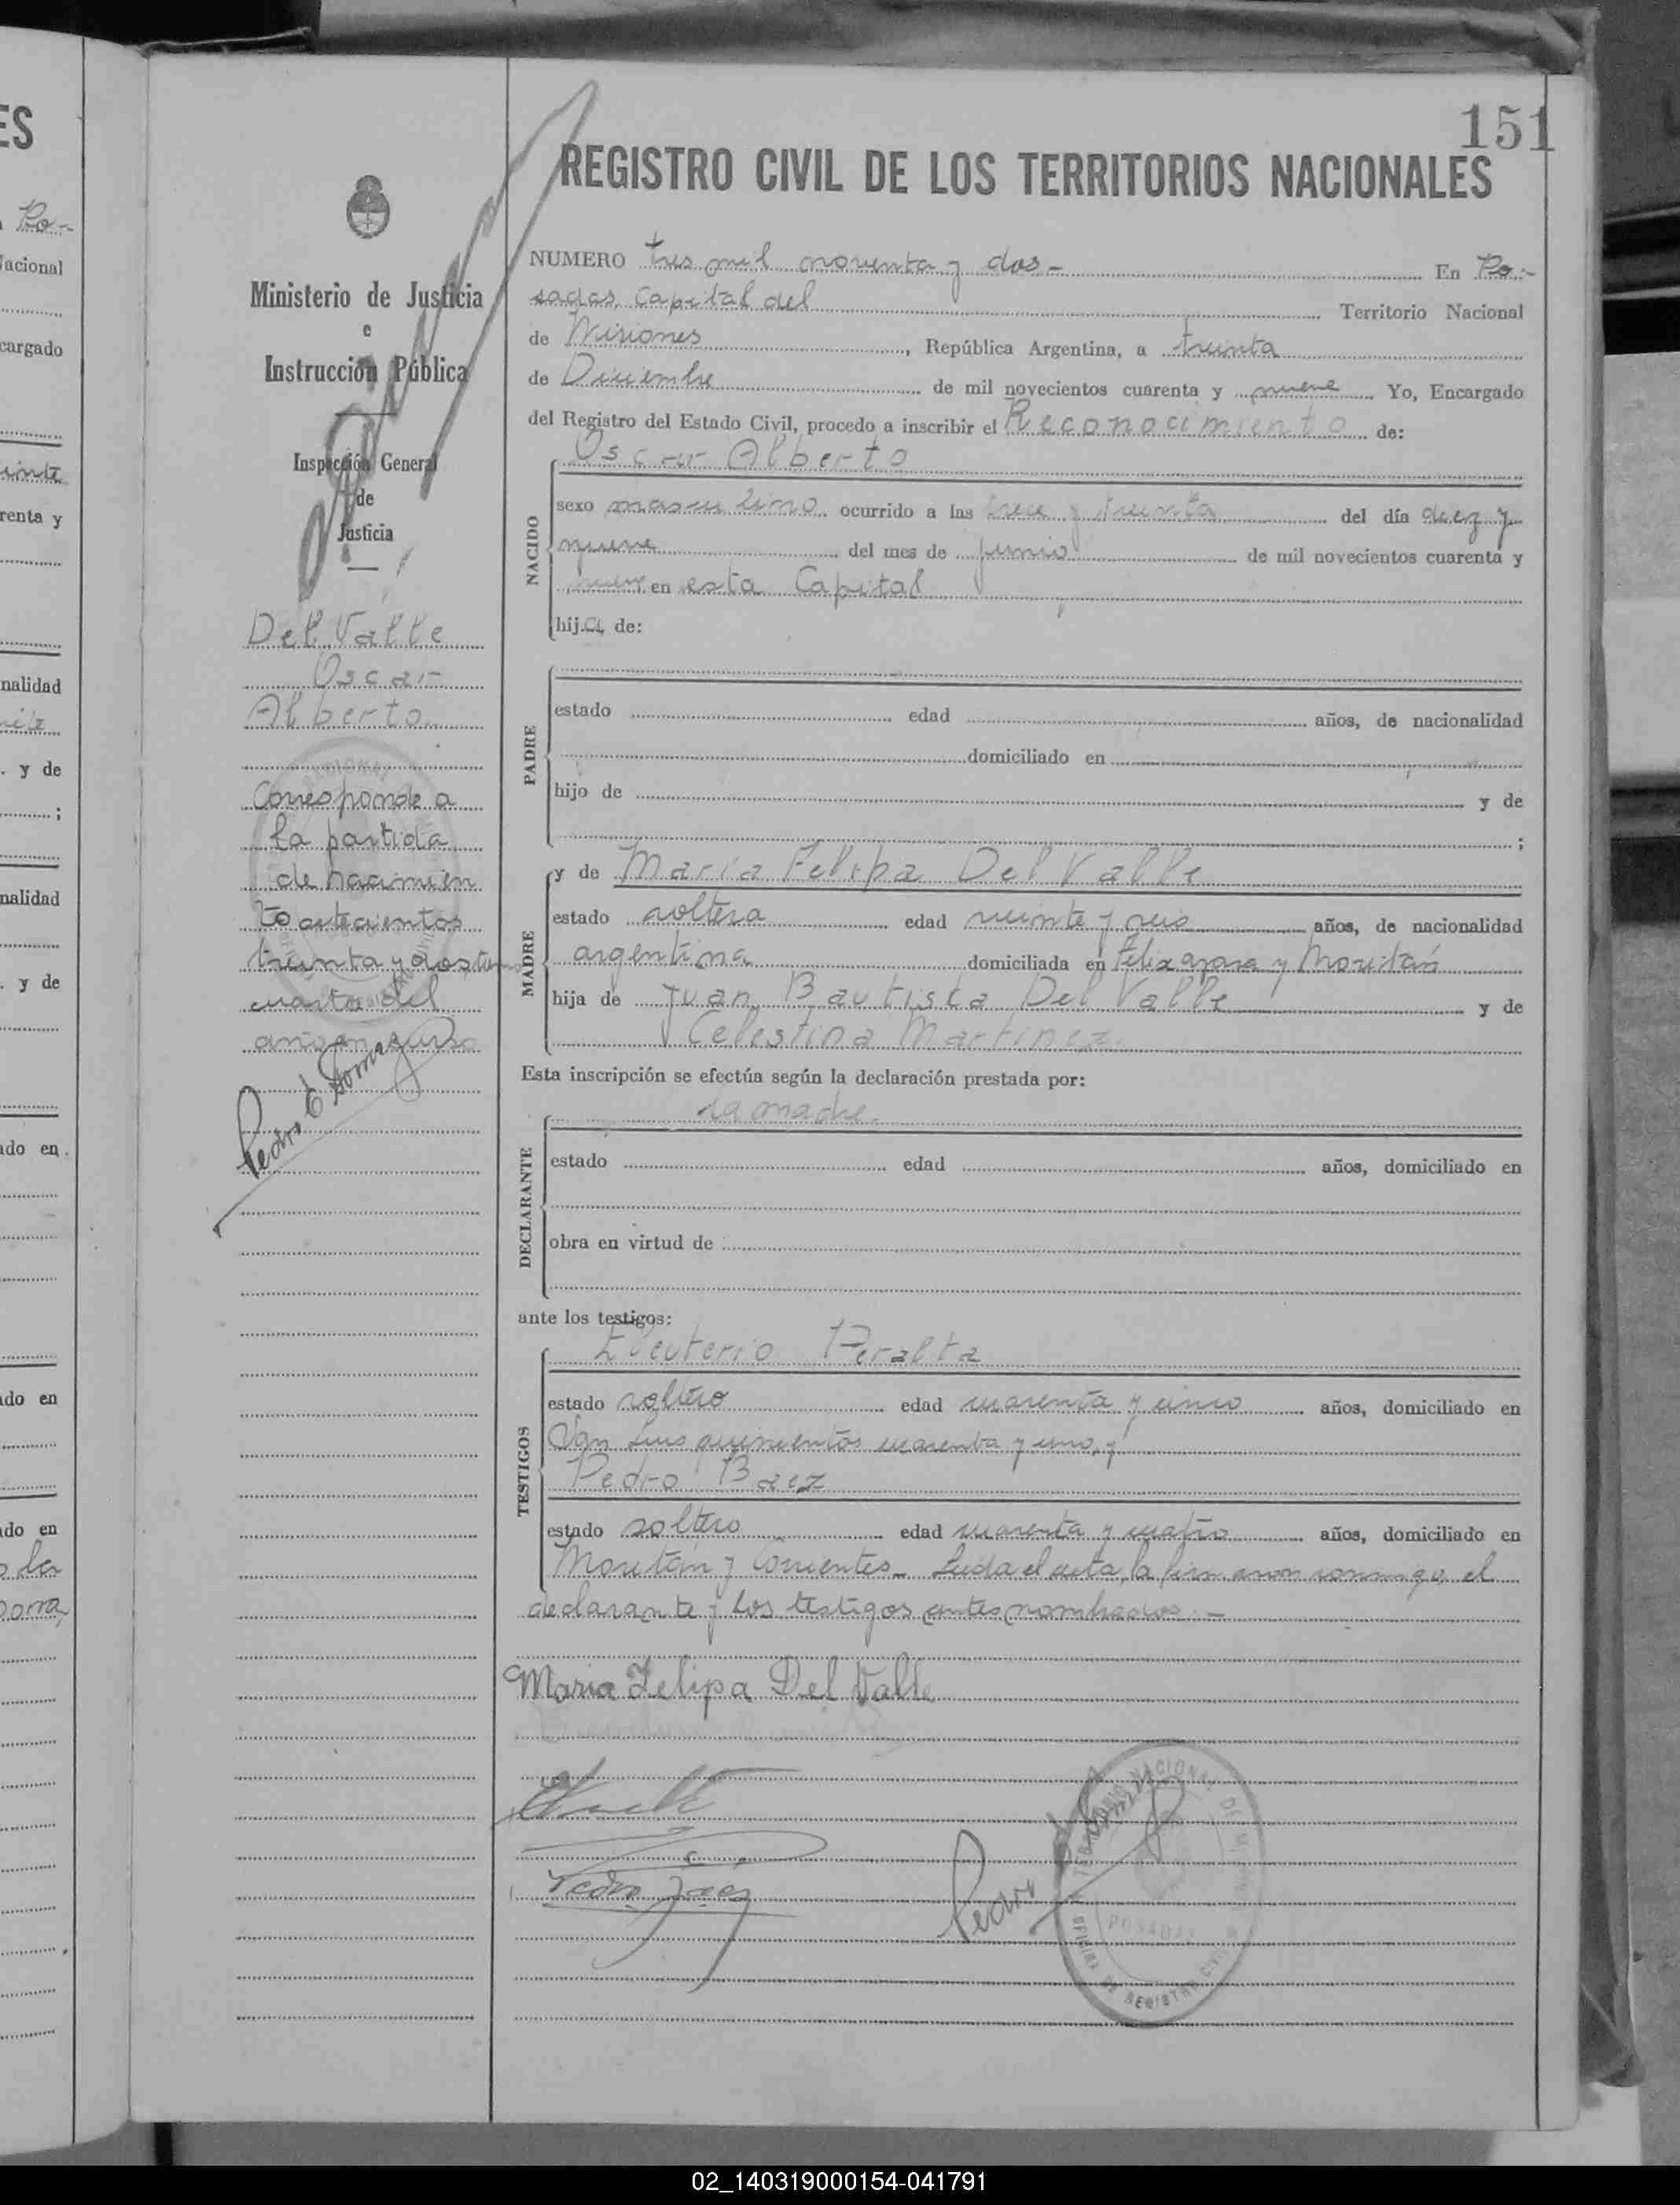 151
REGISTRO CIVIL DE LOS TERRITORIOS NACIONALES
Ministerio de Justicia
e
Instrucción Pública
Inspección General
de
Justicia
Del Valle
Oscar
Alberto
Corresponde a
la partida
de nacimien
to setecientos
treinta y dos tomo
cuarto del
año en curso
Pedro E
NUMERO tres mil noventa y dos - En Po-
sadas, Capital del Territorio Nacional
de Misiones, República Argentina, a treinta
de Diciembre de mil novecientos cuarenta y nueve Yo, Encargado
del Registro del Estado Civil, procedo a inscribir el Reconocimiento de:
Oscar Alberto
NACIDO
sexo masculino ocurrido a las trece y treinta del día diez y
nueve del mes de junio de mil novecientos cuarenta y
nueve en esta Capital
hijo de:
PADRE
estado edad años, de nacionalidad
domiciliado en
hijo de y de
;
MADRE
y de María Felipa Del Valle
estado soltera edad veinte y seis años, de nacionalidad
argentina domiciliada en Felix azara y Moritán
hija de Juan Bautista Del Valle y de
Celestina Martinez
Esta inscripción se efectúa según la declaración prestada por:
la madre.
DECLARANTE
estado edad años, domiciliado en
obra en virtud de
ante los testigos:
TESTIGOS
Eleuterio Peralta
estado soltero edad cuarenta y cinco años, domiciliado en
San Luis quinientos cuarenta y uno, y
Pedro Baez
estado soltero edad cuarenta y cuatro años, domiciliado en
Moritán y Corrientes - Leída el acta, la firmaron conmigo, el
declarante y los testigos antes nombrados. -
Maria Felipa Del Valle
Pedro Baez
Pedro
POSADAS
OFICINA DE REGISTRO CIVIL
02_140319000154-041791